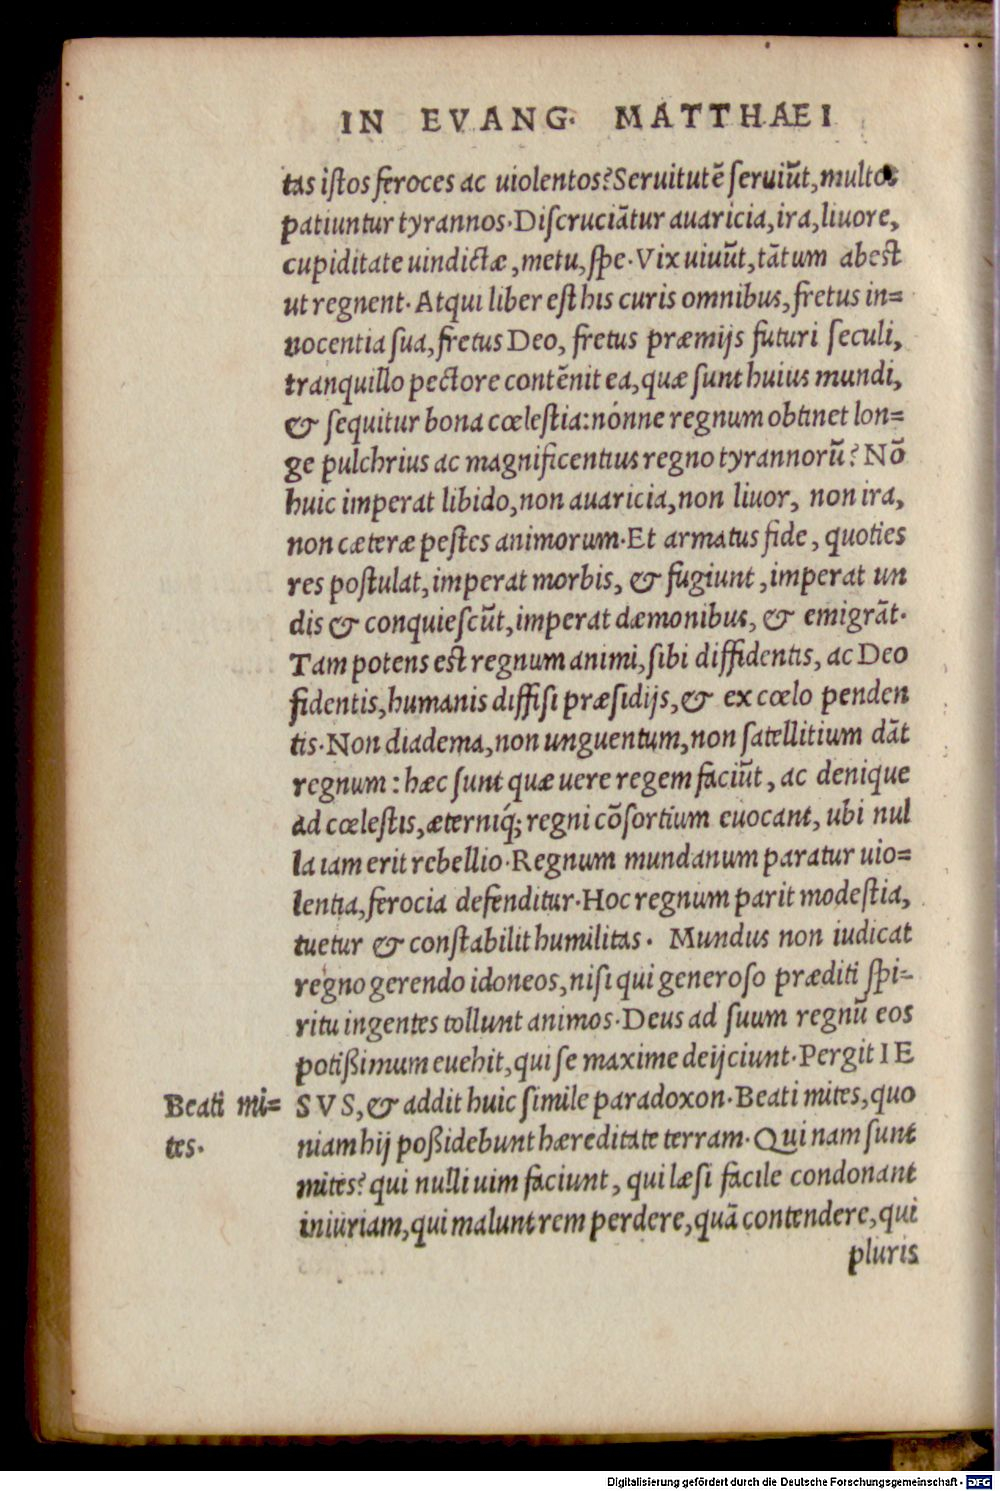 IN EVANG. MATTHAEI
tas istos feroces ac uiolentos? Seruitutē seruiūt, multos
patiuntur tyrannos. Discruciātur auaricia, ira, liuore,
cupiditate uindictæ, metu, spe. Vix uiuūt, tātum abest
ut regnent. Atqui liber est his curis omnibus, fretus in=
nocentia sua, fretus Deo, fretus præmijs futuri seculi,
tranquillo pectore contēnit ea, quæ sunt huius mundi,
& sequitur bona cœlestia: nónne regnum obtinet lon=
ge pulchrius ac magnificentius regno tyrannorū? Nō
huic imperat libido, non auaricia, non liuor, non ira,
non cæteræ pestes animorum. Et armatus fide, quoties
res postulat, imperat morbis, & fugiunt, imperat un
dis & conquiescūt, imperat dæmonibus, & emigrāt.
Tam potens est regnum animi, sibi diffidentis, ac Deo
fidentis, humanis diffisi præsidijs, & ex cœlo penden
tis. Non diadema, non unguentum, non satellitium dāt
regnum: hæc sunt quæ uere regem faciūt, ac denique
ad cœlestis, æterniq́; regni cōsortium euocant, ubi nul
la iam erit rebellio. Regnum mundanum paratur uio=
lentia, ferocia defenditur. Hoc regnum parit modestia,
tuetur & constabilit humilitas. Mundus non iudicat
regno gerendo idoneos, nisi qui generoso præditi spi=
ritu ingentes tollunt animos. Deus ad suum regnū eos
potißimum euehit, qui se maxime deijciunt. Pergit IE
Beati mi=
tes.
SVS, & addit huic simile paradoxon. Beati mites, quo
niam hij poßidebunt hæreditate terram. Qui nam sunt
mites? qui nulli uim faciunt, qui læsi facile condonant
iniuriam, qui malunt rem perdere, quā contendere, qui
pluris
Digitalisierung gefördert durch die Deutsche Forschungsgemeinschaft - DFG